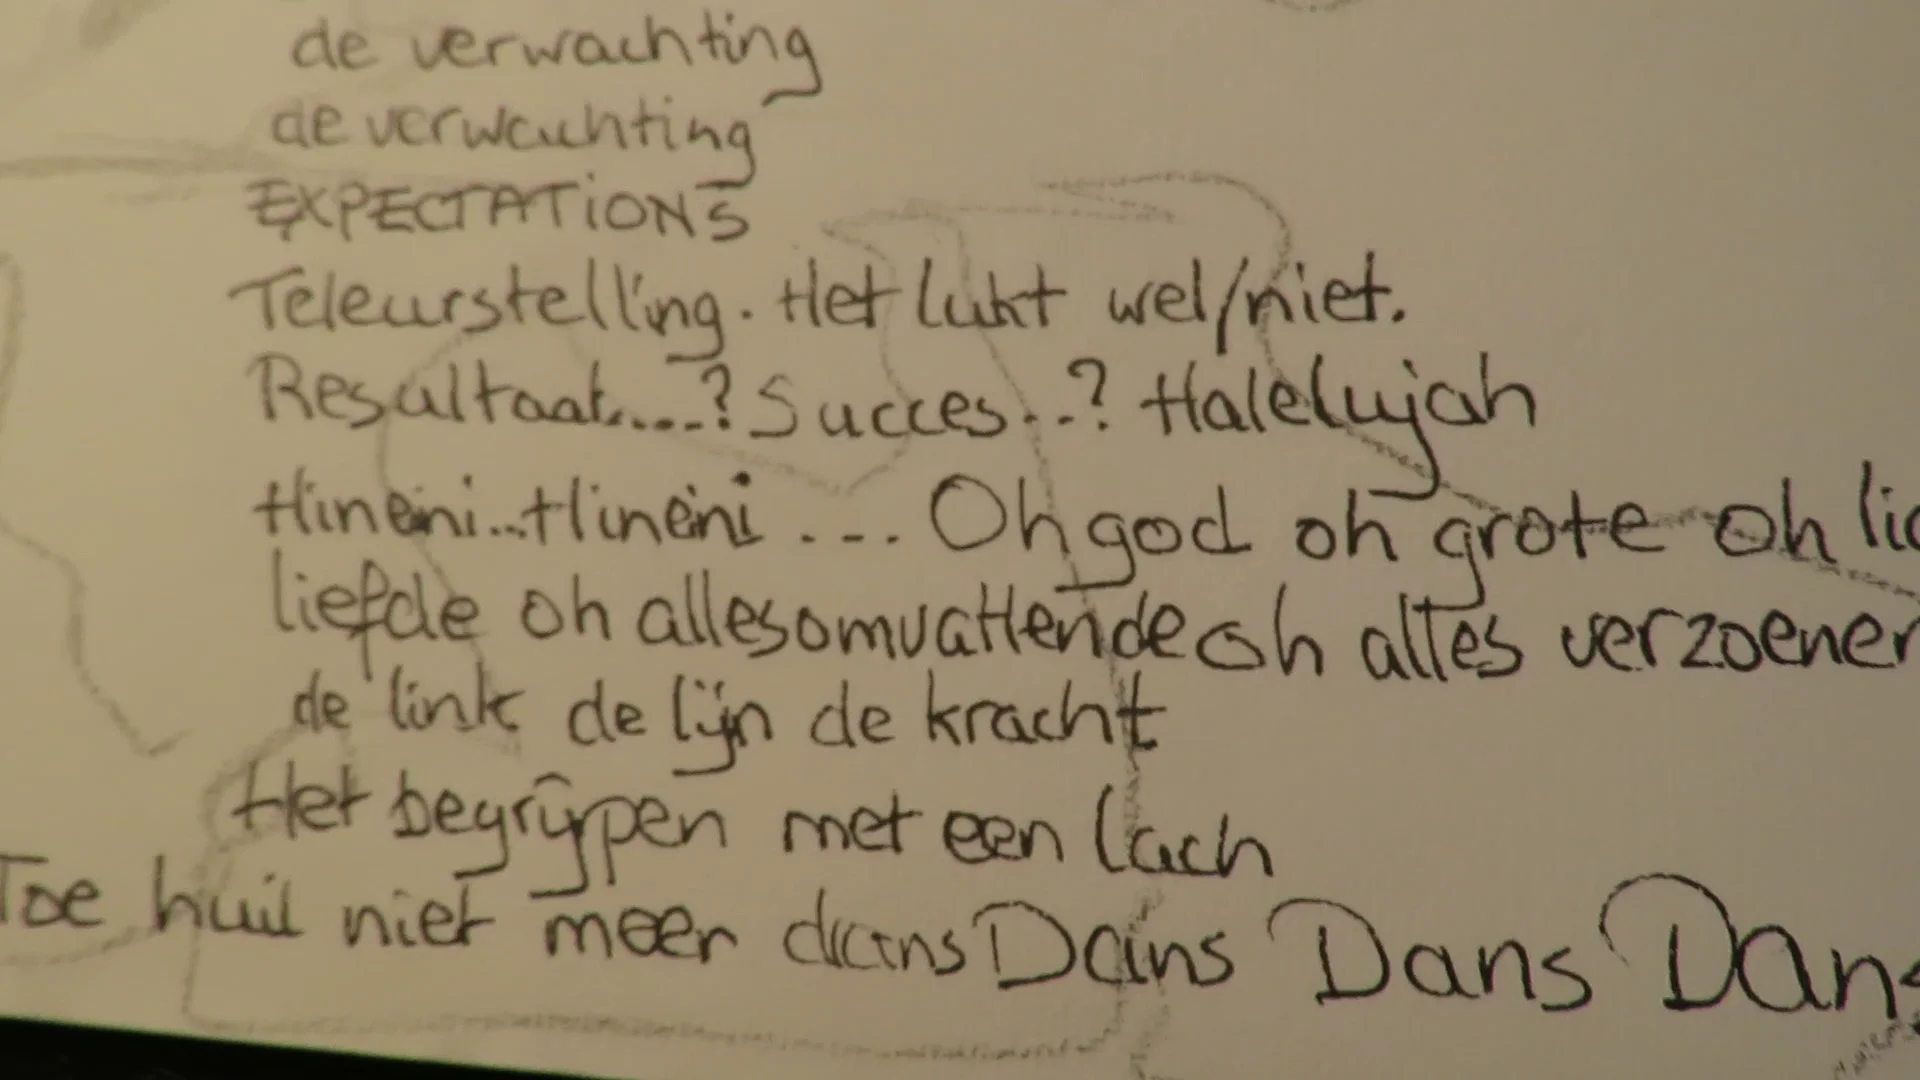 de verwachting
de verwachting
EXPECTATIONS
Teleurstelling. Het lukt wel/niet.
Resultaat.....? Succes...? Halelujah
Hineni...Hineni .... Oh god oh grote oh
liefde oh allesomvattende oh alles
de link de lijn de kracht
Het begrijpen met een lach
Toe huil niet meer dans Dans Dans Dans